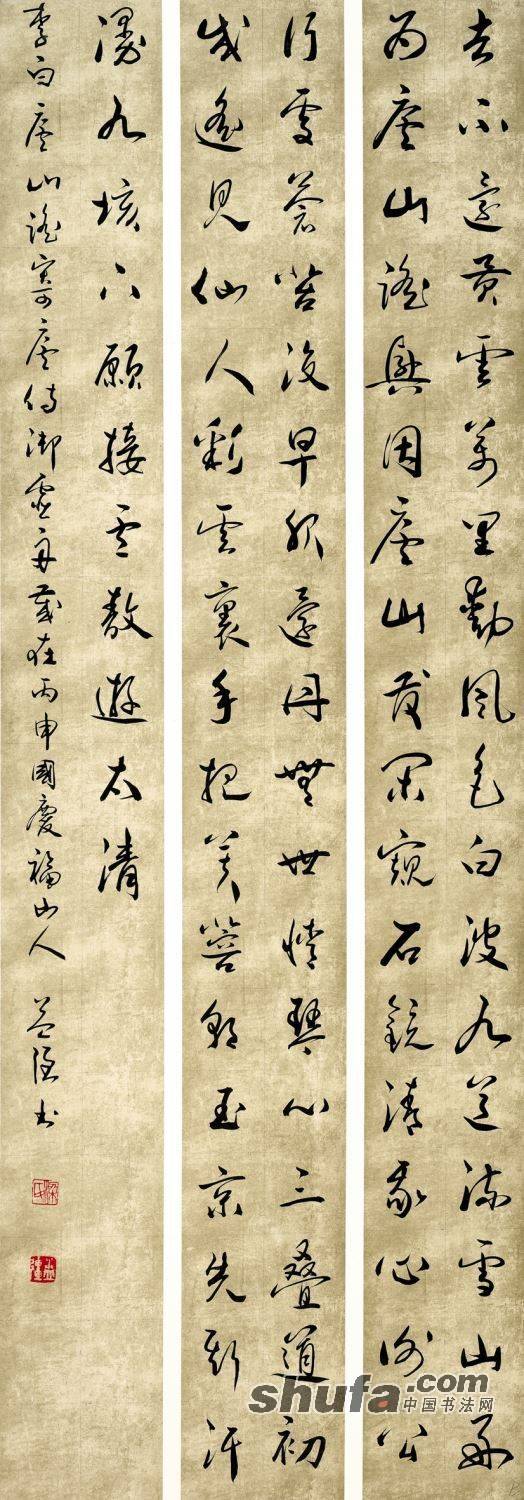 去不還黃雲萬里動風色白波九道流雪山好
為廬山謠興因廬山發閑窺石鏡清我心謝公
行處蒼苔沒早服還丹無世情琴心三疊道初
成遙見仙人彩雲裏手把芙蓉朝玉京先期汗
漫九垓下願接盧敖遊太清
李白廬山謠寄盧侍御虛舟歲在丙申國慶福山人 書
shufa.com
中国书法网